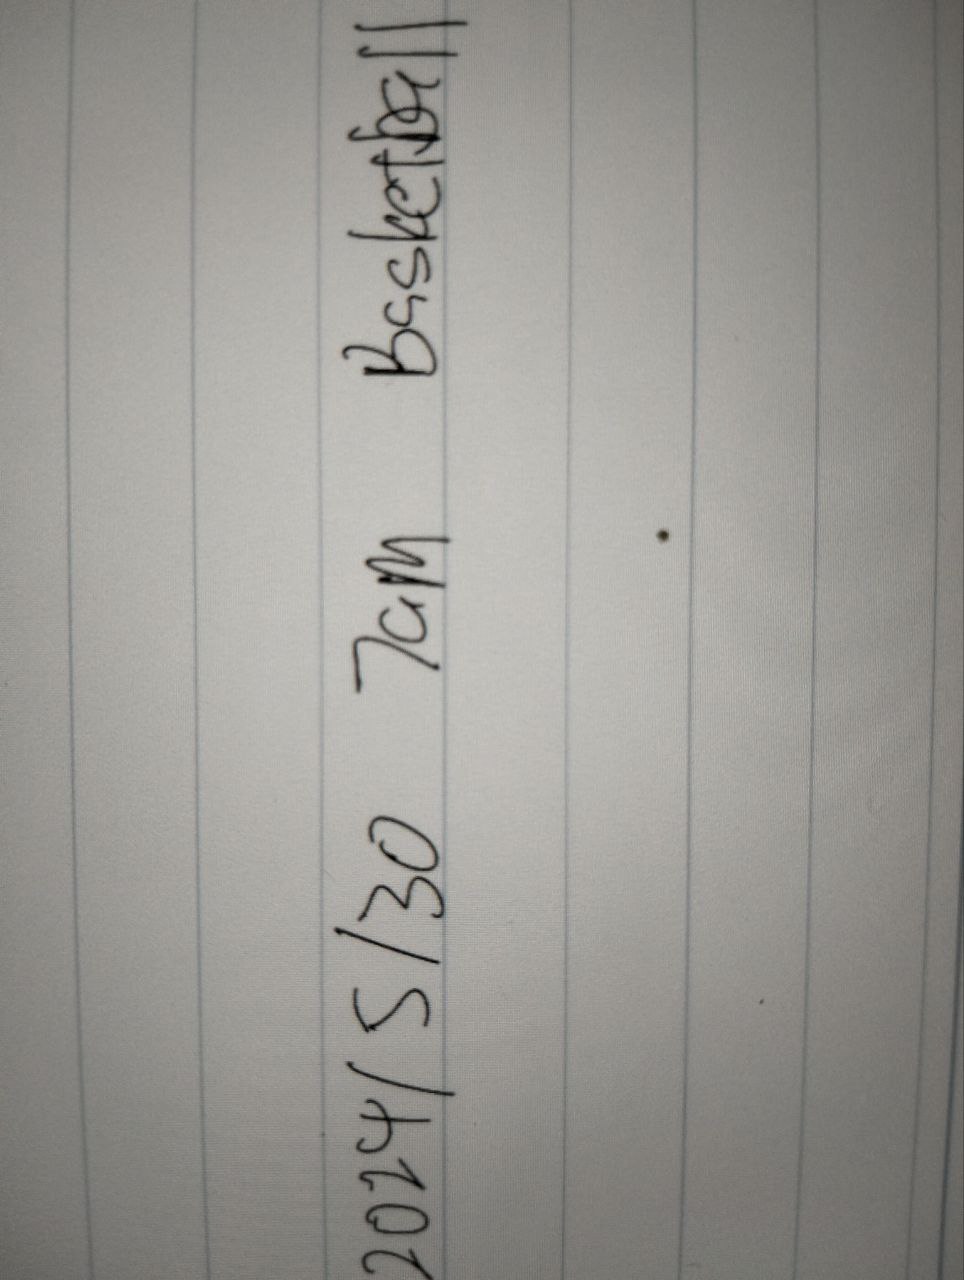 2024/5/30 7am Basketball